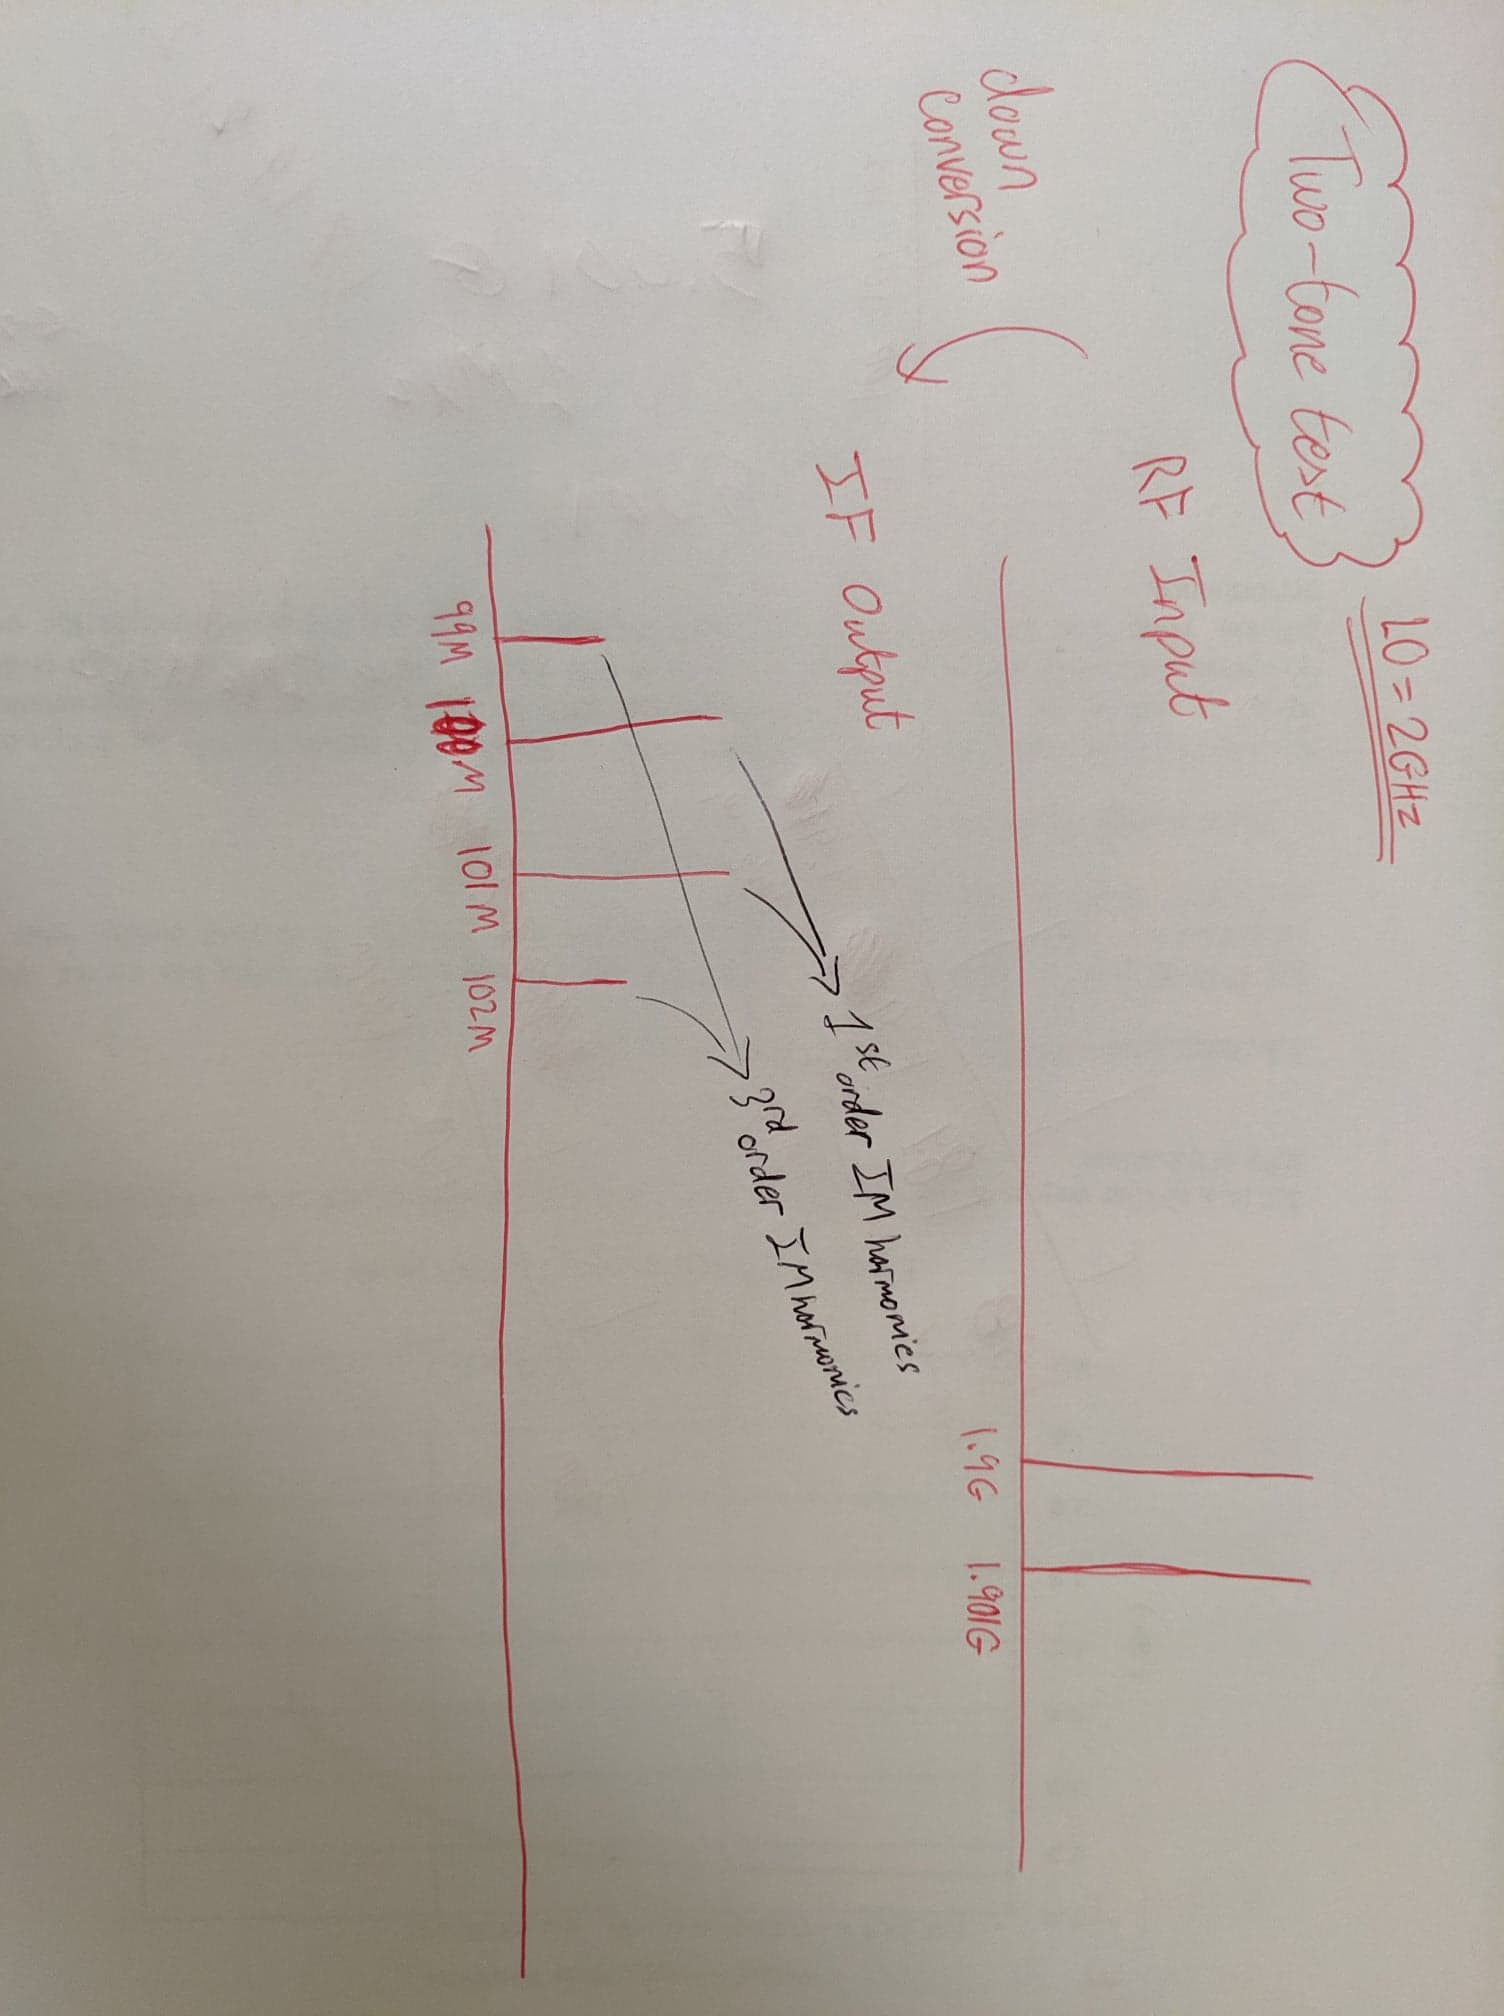 Two-tone test
LO = 2GHz
RF Input
1.9G 1.901G
down
Conversion
IF Output
1st order IM harmonics
3rd order IM harmonics
99M 100M 101M 102M